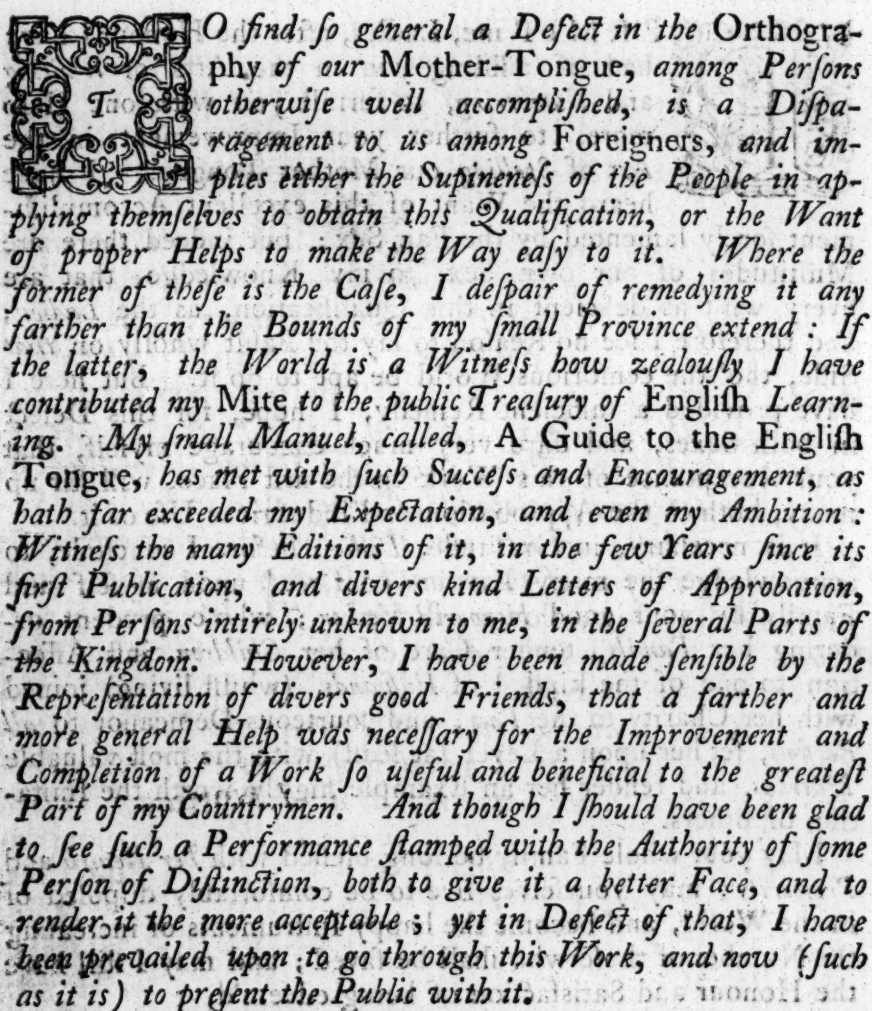 TO find ſo general a Defect in the Orthogra-
phy of our Mother-Tongue, among Perſons
otherwiſe well accompliſhed, is a Diſpa-
ragement to us among Foreigners, and im-
plies either the Supineneſs of the People in ap-
plying themſelves to obtain this Qualification, or the Want
of proper Helps to make the Way eaſy to it. Where the
former of theſe is the Caſe, I deſpair of remedying it any
farther than the Bounds of my ſmall Province extend : If
the latter, the World is a Witneſs how zealouſly I have
contributed my Mite to the public Treaſury of Engliſh Learn-
ing. My ſmall Manuel, called, A Guide to the Engliſh
Tongue, has met with ſuch Succeſs and Encouragement, as
hath far exceeded my Expectation, and even my Ambition :
Witneſs the many Editions of it, in the few Years ſince its
firſt Publication, and divers kind Letters of Approbation,
from Perſons intirely unknown to me, in the ſeveral Parts of
the Kingdom. However, I have been made ſenſible by the
Repreſentation of divers good Friends, that a farther and
more general Help was neceſſary for the Improvement and
Completion of a Work ſo uſeful and beneficial to the greateſt
Part of my Countrymen. And though I ſhould have been glad
to ſee ſuch a Performance ſtamped with the Authority of ſome
Perſon of Diſtinction, both to give it a better Face, and to
render it the more acceptable ; yet in Defect of that, I have
been prevailed upon to go through this Work, and now (ſuch
as it is) to preſent the Public with it.